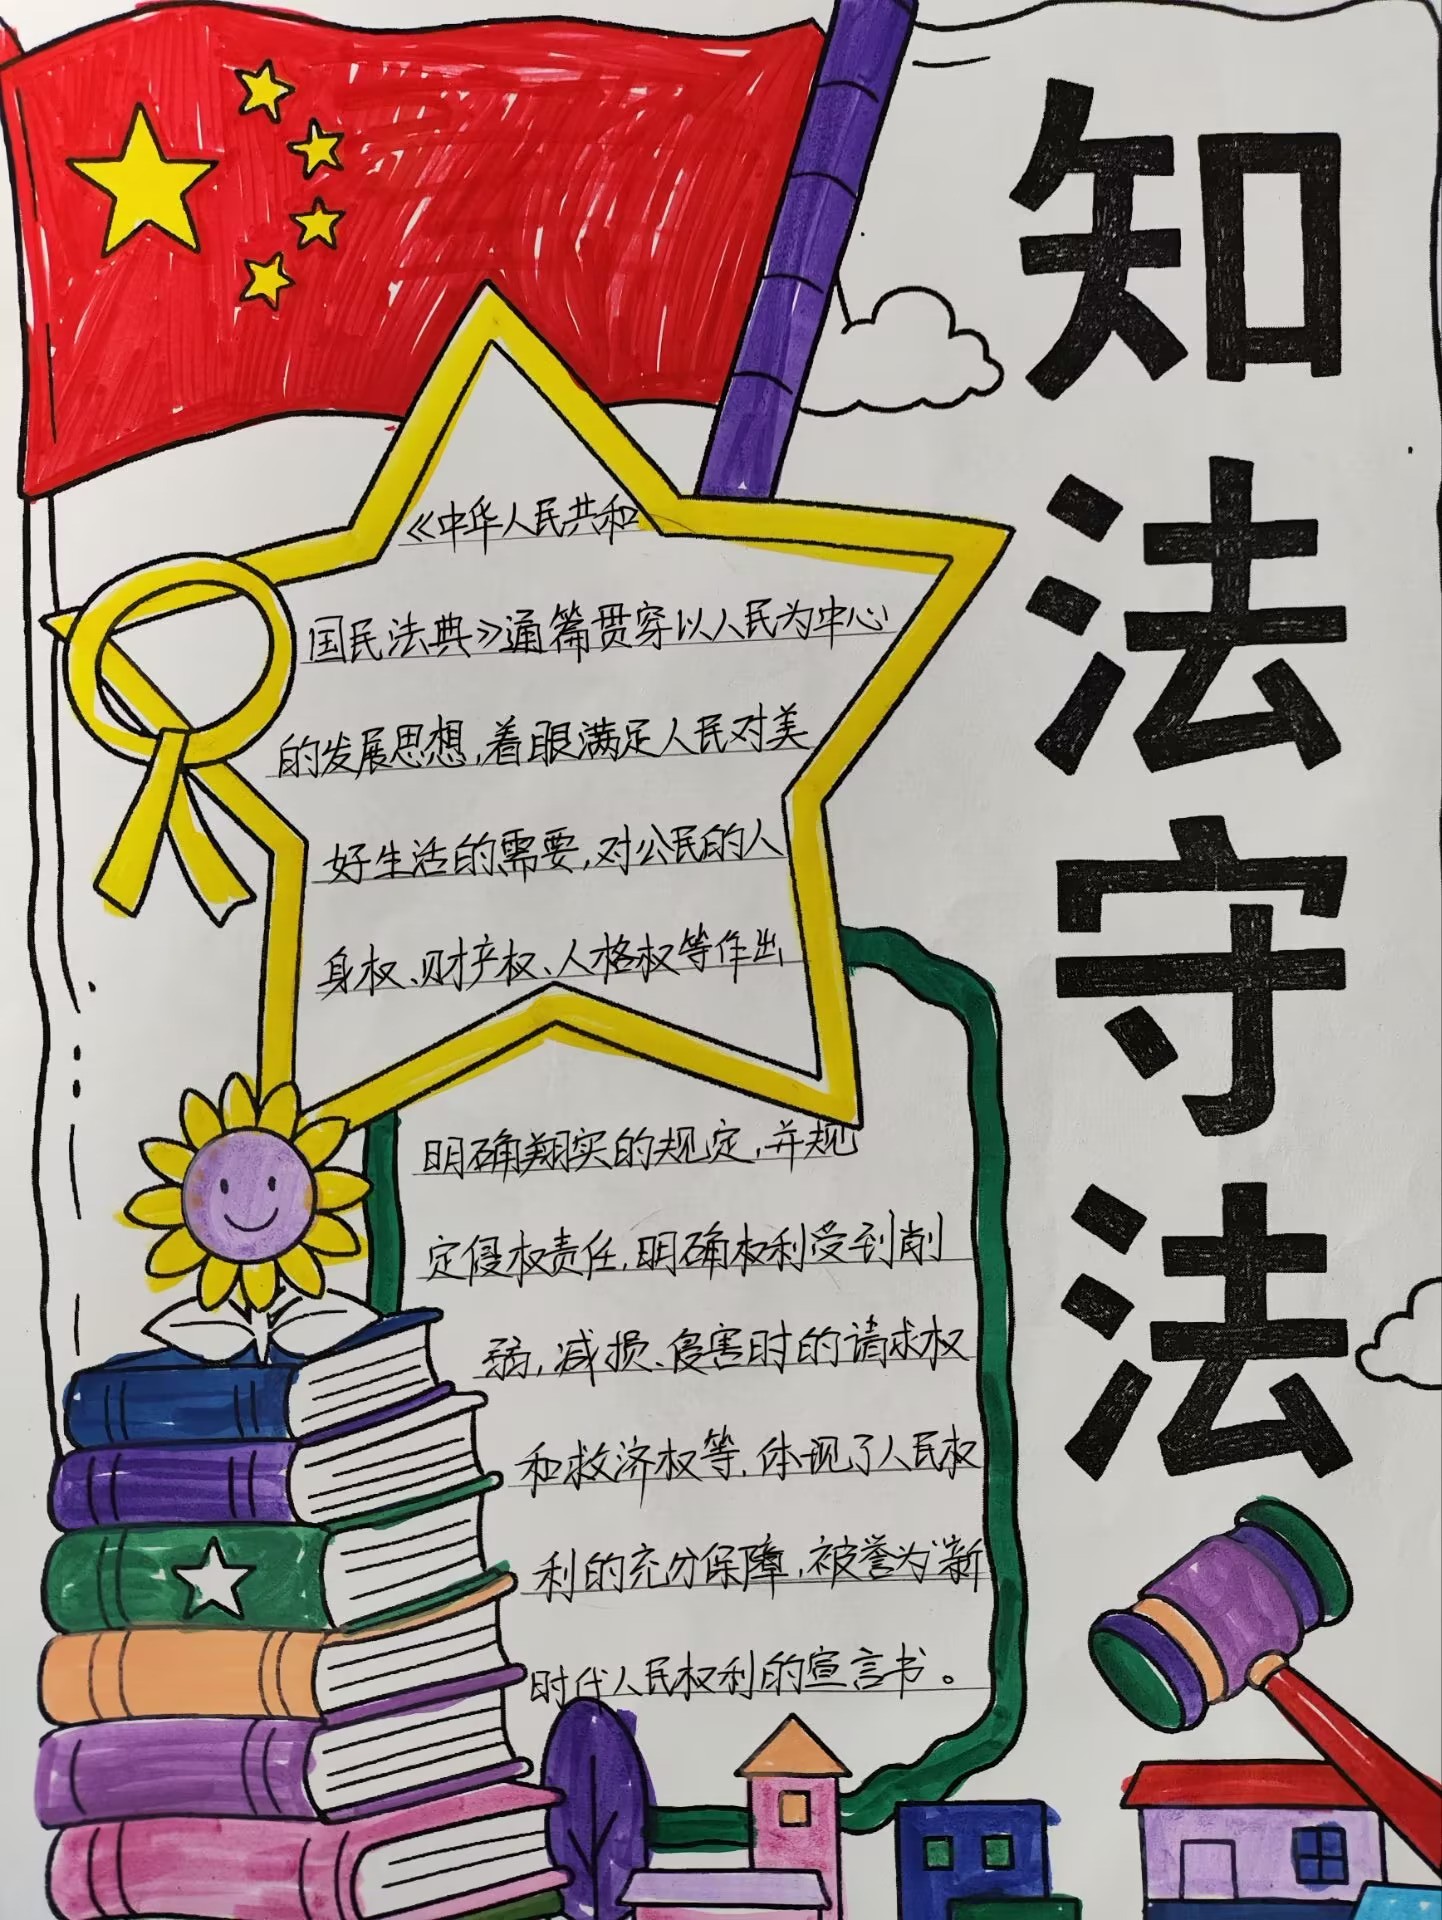 知法守法
《中华人民共和
国民法典》通篇贯穿以人民为中心
的发展思想，着眼满足人民对美
好生活的需要，对公民的人
身权、财产权、人格权等作出
明确翔实的规定，并规
定侵权责任，明确权利受到削
弱，减损、侵害时的请求权
和救济权等，体现了人民权
利的充分保障，被誉为“新
时代人民权利的宣言书。